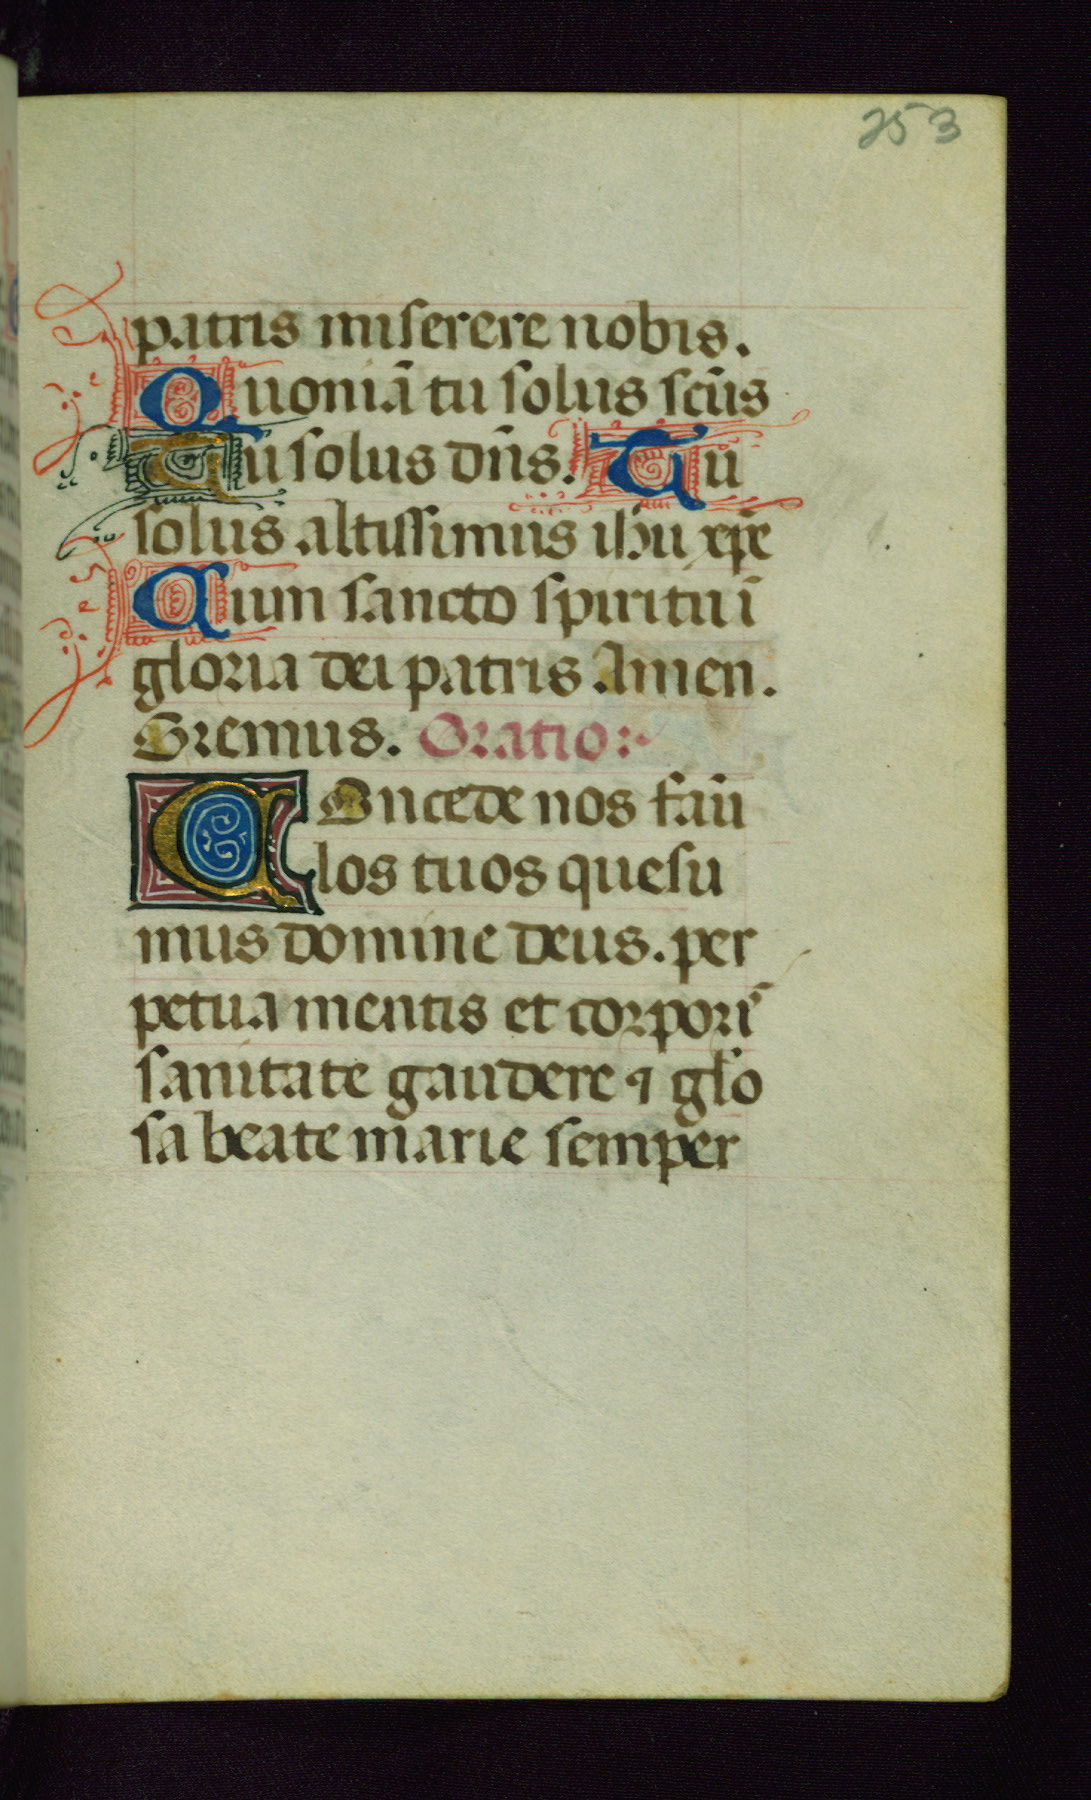 253
patris miserere nobis.
Quoniā tu solus scūs
Tu solus dn̄s. Tu
solus altissimus ihu xp̄e
Cum sancto spiritu ī
gloria dei patris Amen.
Oremus. Oratio:
COncede nos famu
los tuos quesu
mus domine deus. per
petua mentis et corporis
sanitate gaudere ⁊ glo
sa beate marie semper